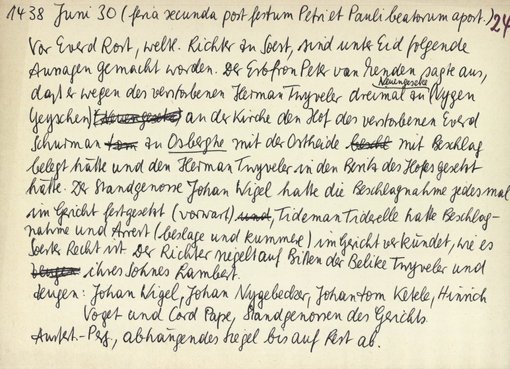 1438 Juni 30 (feria secunda post festum Petri et Pauli beatorum apost.) 24
Vor Everd Rost, weltl. Richter zu Soest, sind unter Eid folgende
Aussagen gemacht worden. Der Erofron Peter van Menden sagte aus,
Neuengeseke
daß er wegen des verstorbenen Herman Twyveler dreimal zu Nygen
Geyschen (Neuengeseke) an der Kirche den Hof des verstorbenen Everd
Schurman tom zu Osberghe mit der Ostheide mit Beschlag
belegt hätte und den Herman Twyveler in den Besitz des Hofes gesetzt
hätte. Der Standgenosse Johan Wigel hatte die Beschlagnahme jedesmal
im Gericht festgesetzt (vorwart) und, Tideman hatte Beschlag-
nahme und Arrest (beslage und kummere) im Gericht verkündet, wie es
Soester Recht ist. Der Richter siegelt auf Bitten der Belike Twyveler und
ihres Sohnes Lambert.
Zeugen: Johan Wigel, Johan Nyggebecker, Johan tom Ketele, Hinrich
Voget und Cord Pape, Standgenossen des Gerichts.
Ausfert.-Perg., abhängendes Siegel bis auf Rest ab.